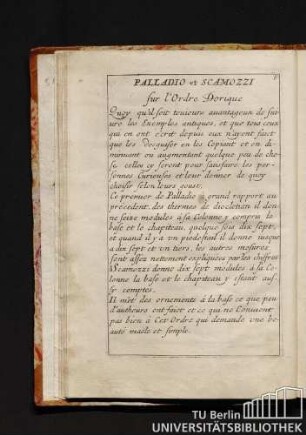 PALLADIO et SCAMOZZI
sur l'Ordre Dorique
Quoy qu'il soit tousiours auantageux de sui
ure les Exemples antiques, et que tous ceux
qui en ont écrit depuis eux n'ayent faict
que les desguiser en les Copiant et en di
minuant ou augmentant quelque peu de cho
se, celles cy seront pour satisfaire les per
sonnes Curieuses et leur donner de quoy
choisir selon leurs goust.
Ce premier de Palladio a grand rapport au
precedent, des thermes de diocletian il don
ne seize modules a sa Colonne y compris la
base et le chapiteau, quelque fois dix sept,
et quand il y a un piedestail il donne iusque
a dix sept et un tiers, les autres mesures
sont asses nettement expliquées par les chiffres
Scamozzi donne dix sept modules a sa Co
lonne la base et le chapiteau y estant aus
sy comptes.
Il met des ornements a la base ce que peu
d'autheurs ont faict et ce qui ne Conuient
pas bien a Cet Ordre qui demande une be
auté masle et simple.
TU Berlin
UNIVERSITÄTSBIBLIOTHEK